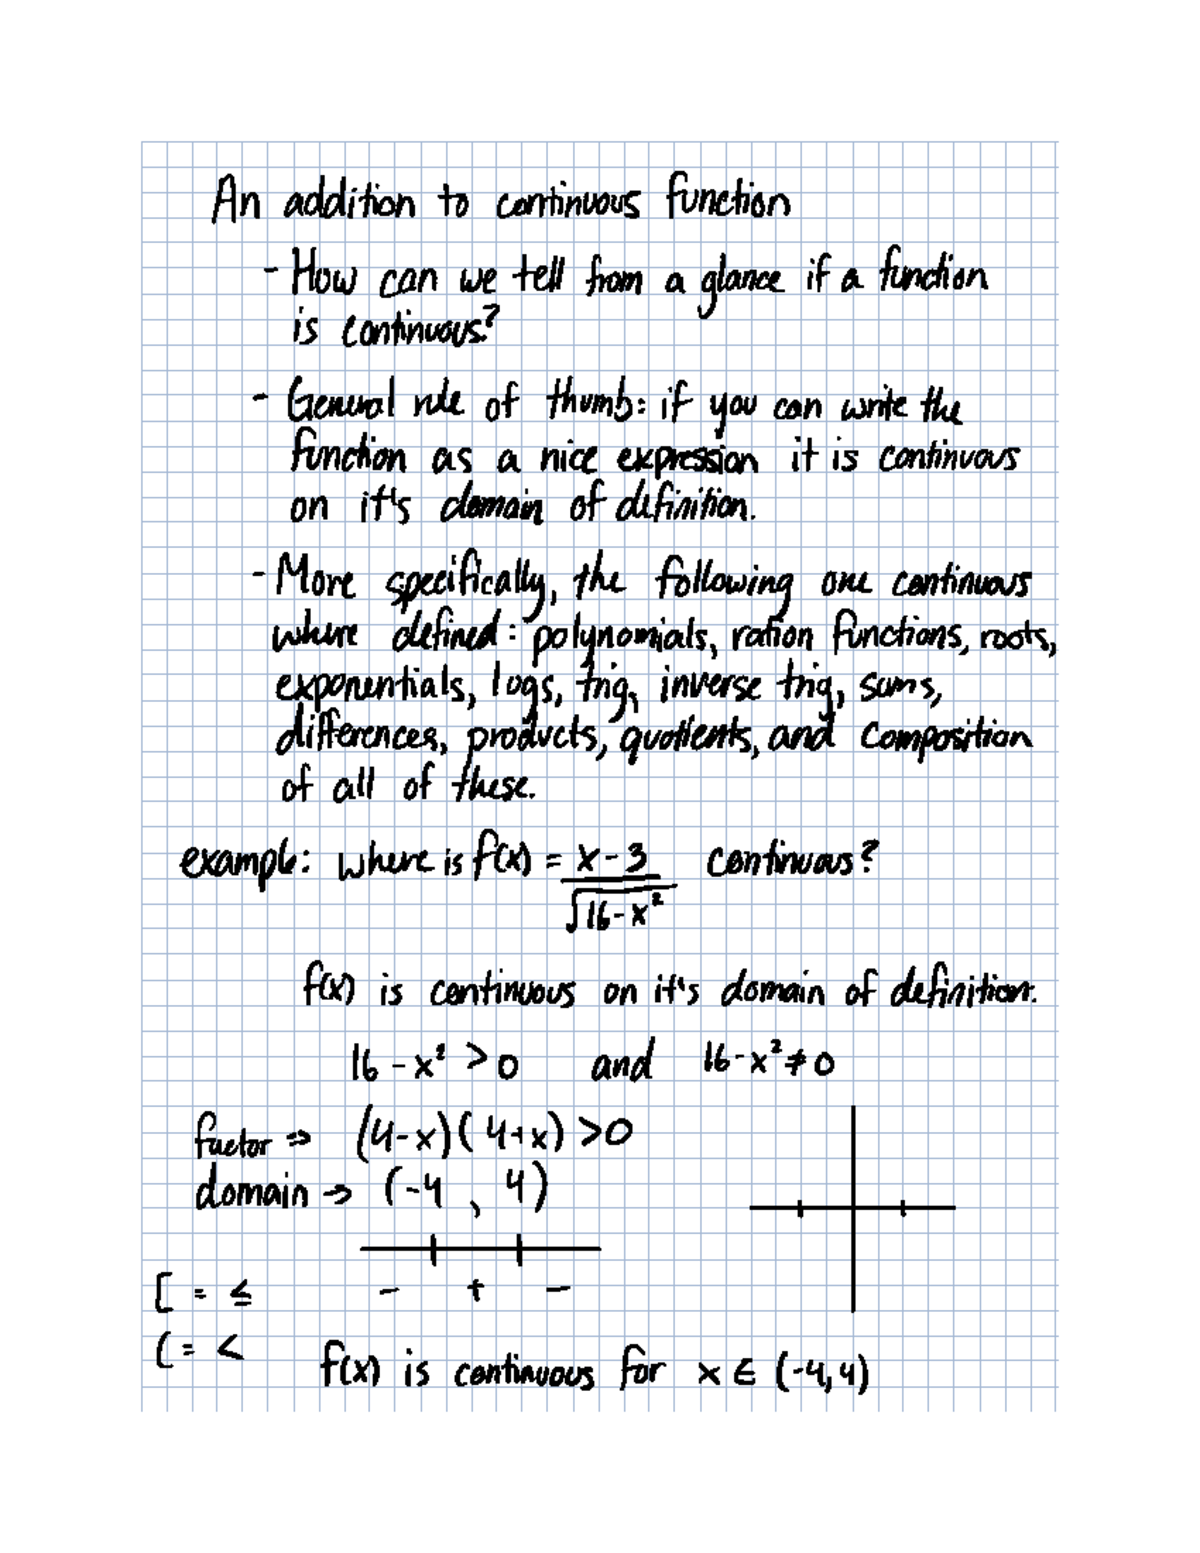 An addition to continuous function
- How can we tell from a glance if a function
is continuous?
- General rule of thumb: if you can write the
function as a nice expression it is continuous
on it's domain of definition.
- More specifically, the following are continuous
where defined: polynomials, ration functions, roots,
exponentials, logs, trig, inverse trig, sums,
differences, products, quotients, and composition
of all of these.
example: where is f(x) = x-3 / √16-x² continuous?
f(x) is continuous on it's domain of definition.
16-x² > 0 and 16-x² ≠ 0
factor ⇒ (4-x)(4+x) >0
domain → (-4 , 4)
- + -
[ = ≤
( = <
f(x) is continuous for x ∈ (-4,4)